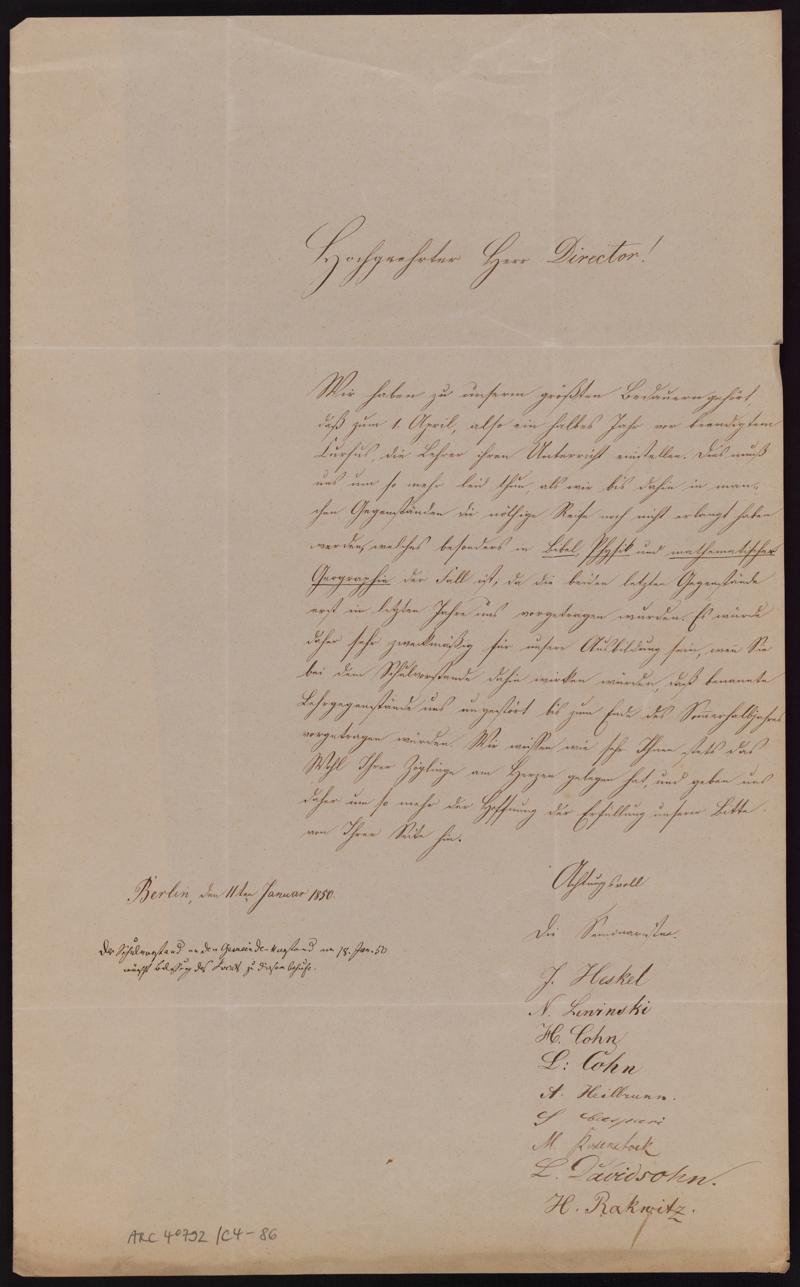 Hochgeehrter Herr Director!
Wir haben zu unserm größten Bedauern gehört,
daß zum 1. April, also ein halbes Jahr vor beendigtem
Cursus, die Lehrer ihren Unterricht einstellen. Dies muß
uns um so mehr leid thun, als wir bis dahin in man-
chen Gegenständen die nöthige Reife noch nicht erlangt haben
werden, welches besonders in Bibel, Physik und mathematischer
Geographie der Fall ist; da die beiden letzten Gegenstände
erst im letzten Jahre uns vorgetragen wurden. Es würde
daher sehr zweckmäßig für unsere Ausbildung sein, wenn Sie
bei dem Schulvorstande dahin wirken würden, daß benannte
Lehrgegenstände uns ungestört bis zum Ende des Sommerhalbjahres
vorgetragen würden. Wir wissen wie sehr Ihnen stets das
Wohl Ihrer Zöglinge am Herzen gelegen hat, und geben uns
daher um so mehr der Hoffnung der Erfüllung unserer Bitte
von Ihrer Seite hin.
Achtungsvoll
Berlin, den 11ten Januar 1850.
Die Seminaristen.
Der Schulvorstand an den Gemeinde-Vorstand am 18. Jan. 50
zu diesem Behufe.
J. Heskel
N. Lewinski
H. Cohn
L: Cohn
A. Heilbrunn.
S Caspari
M Rosenstock
L. Davidsohn.
H. Rakwitz.
ARC 4°792 /C4-86